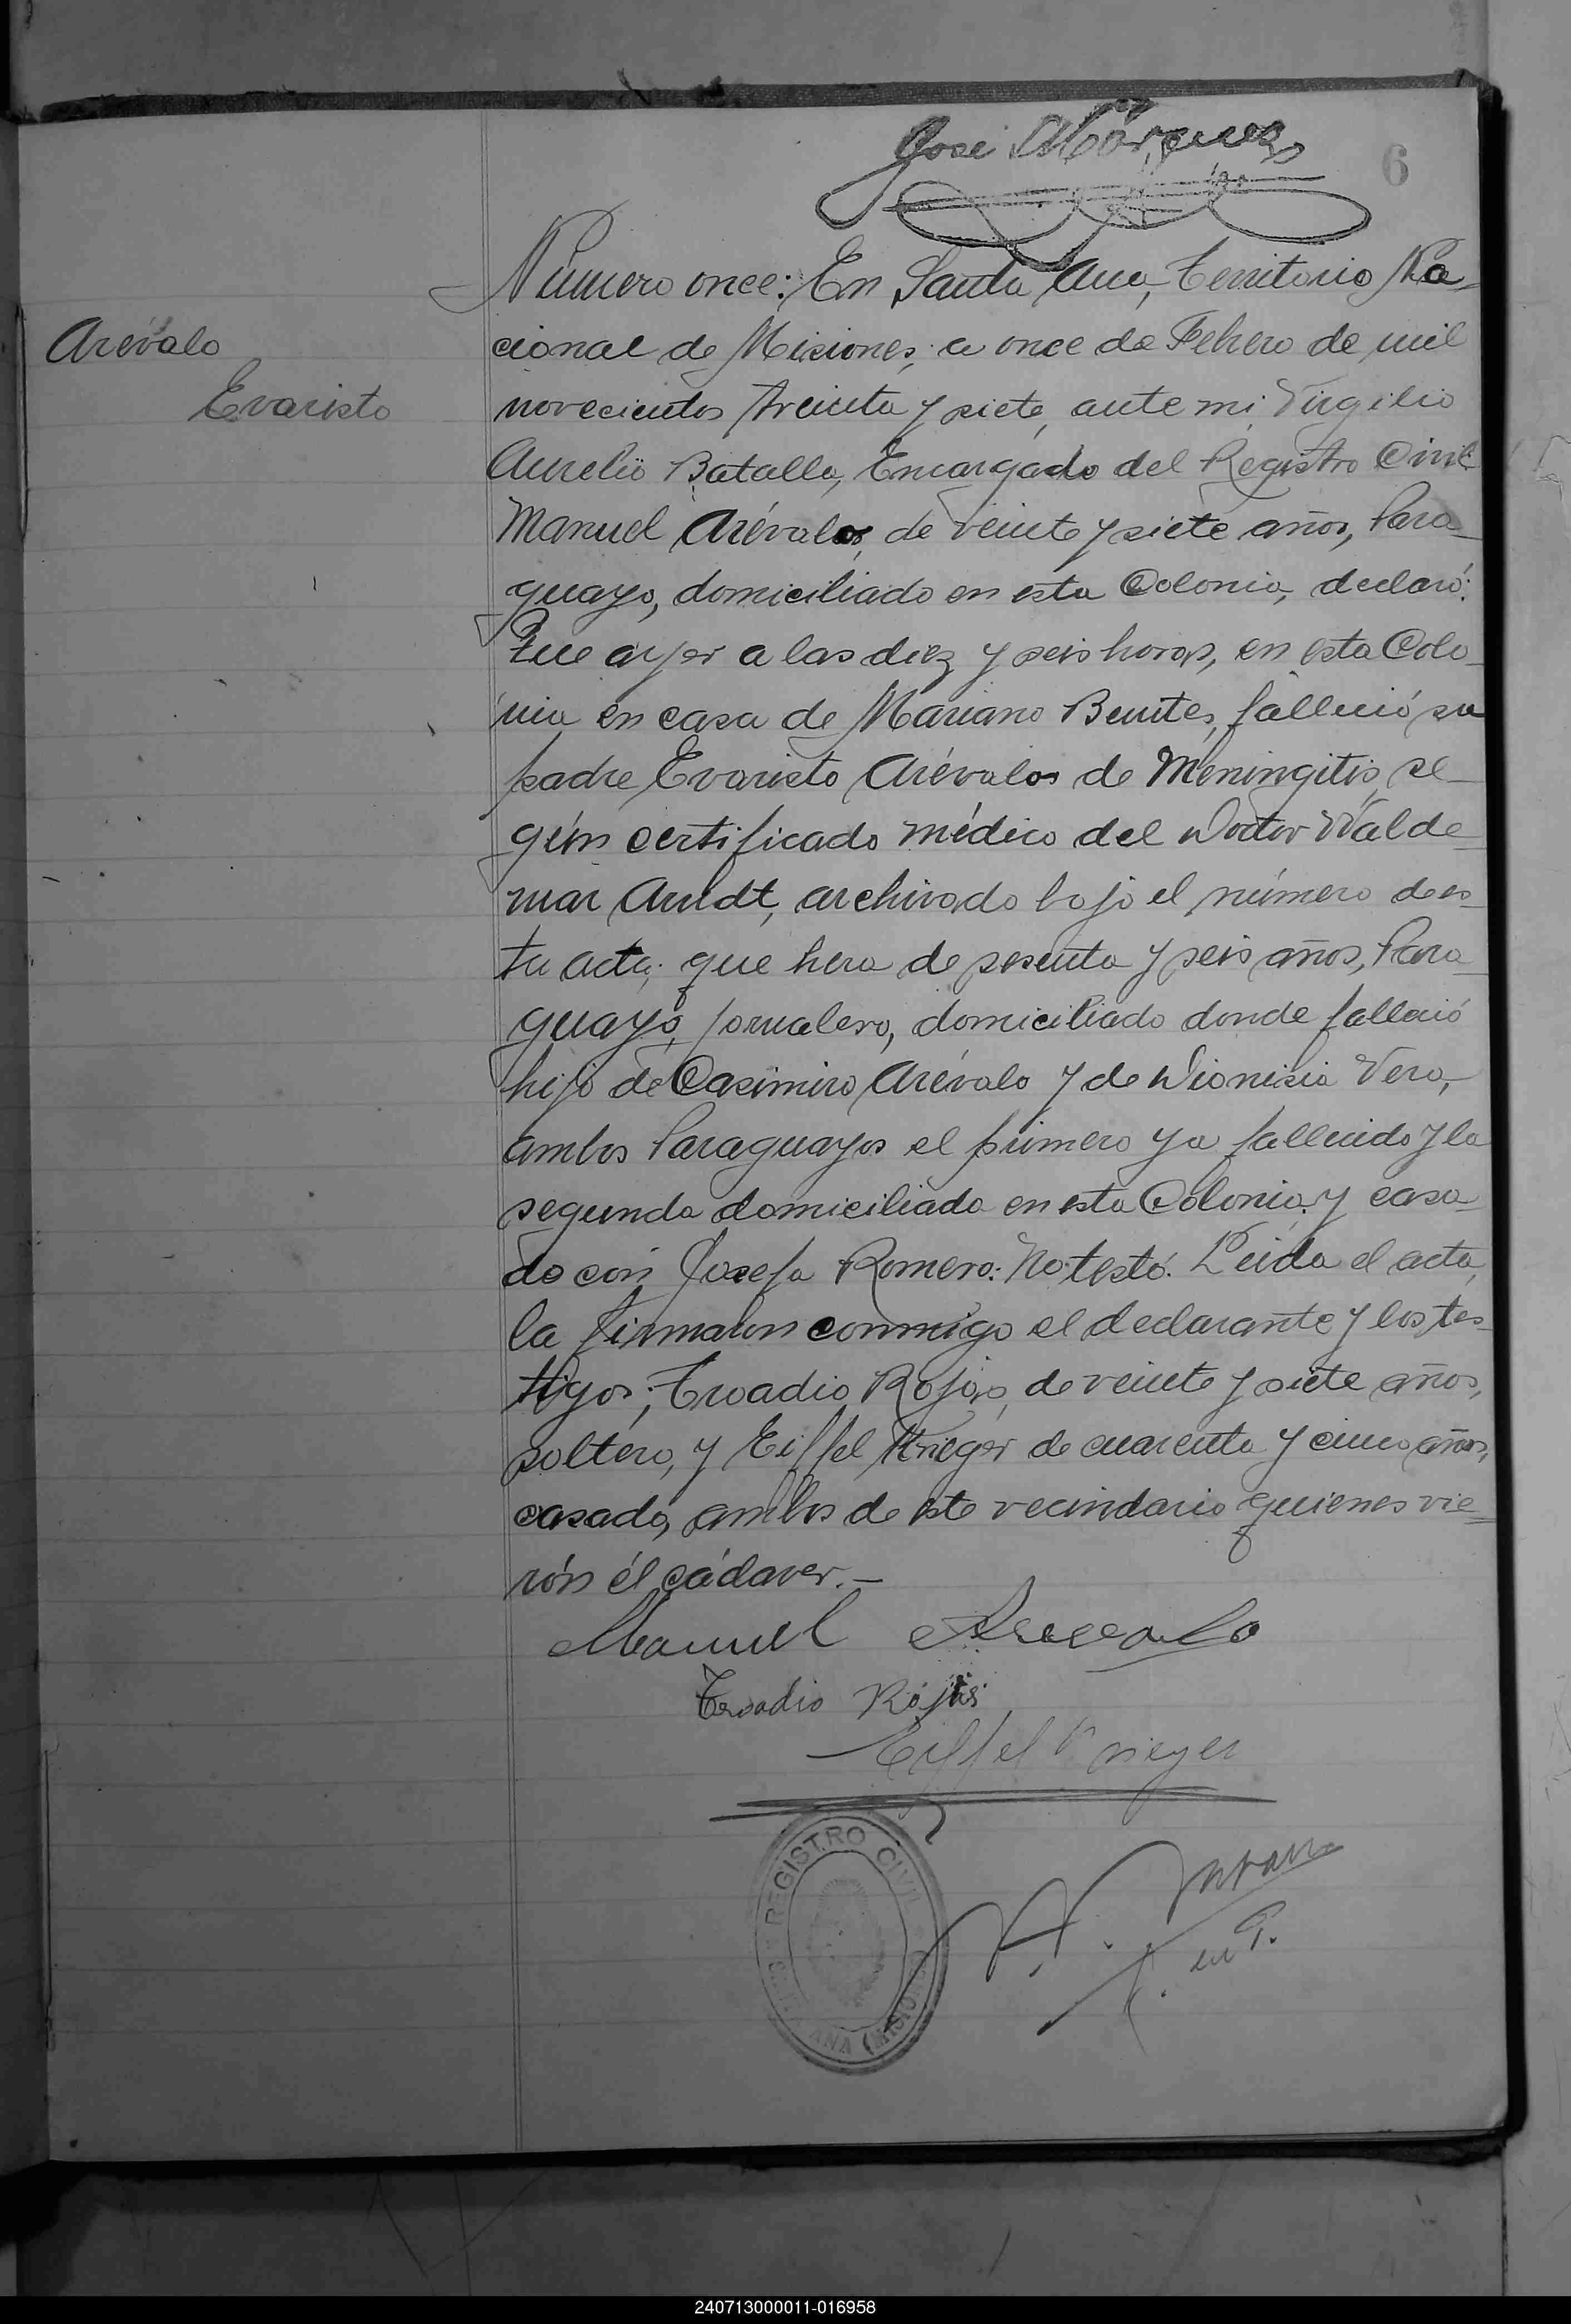 José Márquez
6
Número once: En Santa Ana, Territorio Na-
Arévalo
Evaristo
cional de Misiones, a once de Febrero de mil
novecientos treinta y siete, ante mi Virgilio
Aurelio Batalla, Encargado del Registro Civil
Manuel Arévalos, de veinte y siete años, Para-
guayo, domiciliado en esta Colonia, declaró:
Que ayer a las diez y seis horas, en esta Colo-
nia en casa de Mariano Benites, falleció su
padre Evaristo Arévalos de Meningitis, se-
gún certificado médico del Doctor Walde-
mar Arndt, archivado bajo el número de es-
ta acta; que hera de sesenta y seis años, Para-
guayo, jornalero, domiciliado donde falleció
hijo de Casimiro Arévalo y de Dionisia Vera,
ambos Paraguayos el primero ya fallecido y la
segunda domiciliada en esta Colonia y casa-
do con Josefa Romero: No testó. Leida el acta,
la firmaron conmigo el declarante y los tes-
tigos; Troadio Rojas, de veinte y siete años,
soltero, y Eiffel Krieger de cuarenta y cinco años,
casado, ambos de este vecindario quienes vie-
rón él cádaver.—
Manuel Arevalo
Troadio Rojas
Eiffel Krieger
REGISTRO CIVIL
ANA (MISIONES)